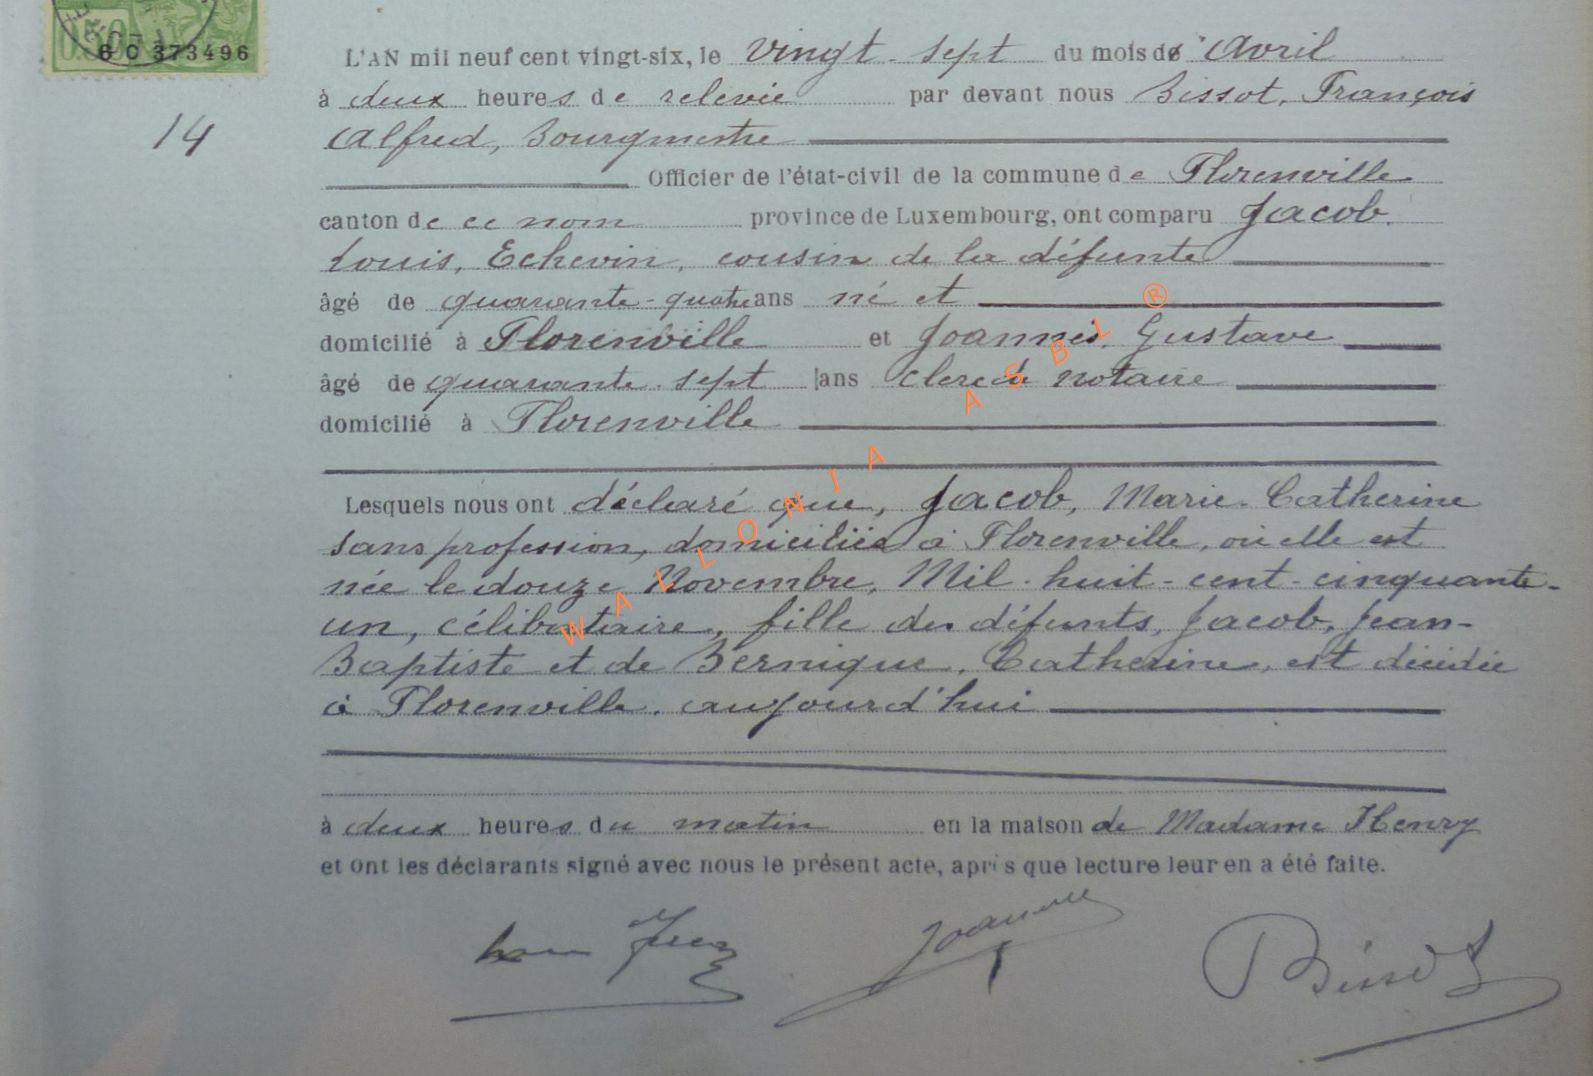 0.50
6 C 373496
L'AN mil neuf cent vingt-six, le vingt-sept du mois de Avril
à deux heures de relevée par devant nous Bissot, François
14
Alfred, Bourgmestre
Officier de l'état-civil de la commune de Florenville
canton de ce nom province de Luxembourg, ont comparu Jacob,
Louis, Echevin, cousin de la défunte
âgé de quarante-quatre ans né et
domicilié à Florenville et Joannes, Gustave
âgé de quarante-sept ans clerc de notaire
domicilié à Florenville
Lesquels nous ont déclaré que, Jacob, Marie-Catherine
sans profession, domiciliée à Florenville, où elle est
née le douze Novembre, Mil-huit-cent-cinquante-
un, célibataire, fille des défunts, Jacob, Jean-
Baptiste et de Bernique, Catherine, est décédée
à Florenville, aujourd'hui
à deux heures du matin en la maison de Madame Henry
et ont les déclarants signé avec nous le présent acte, après que lecture leur en a été faite.
Joannes
Bissot
WALLONIA ASBL ®